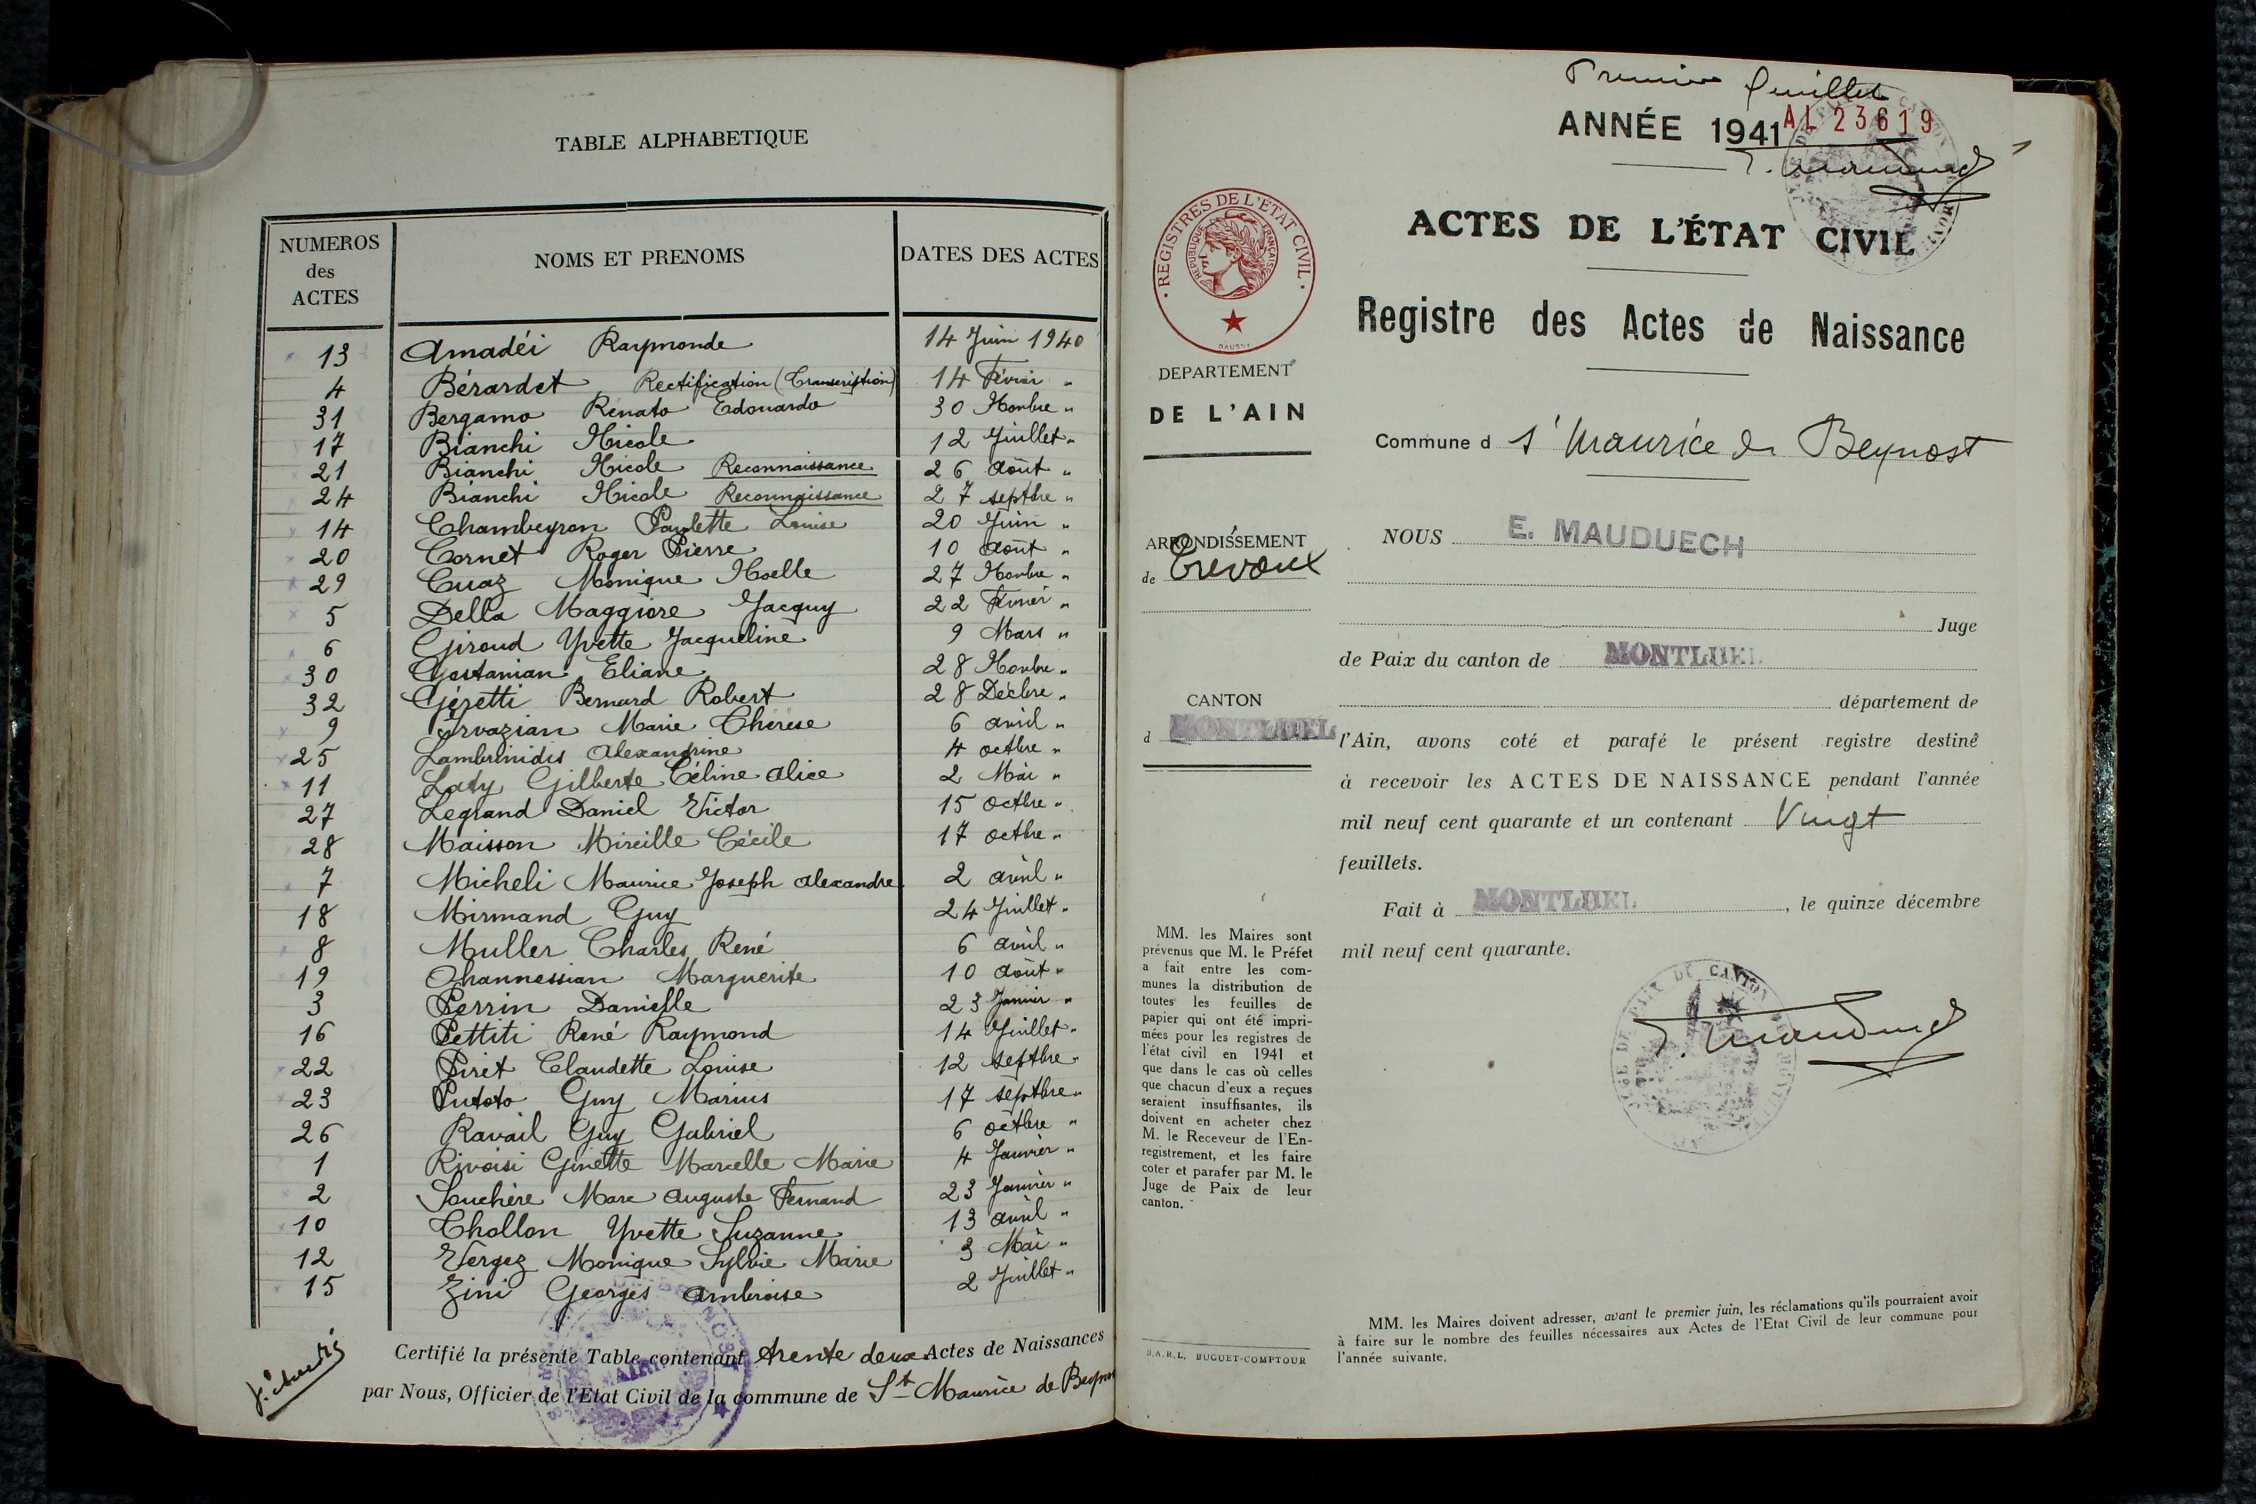 TABLE ALPHABETIQUE
NUMEROS
des
ACTES
NOMS ET PRENOMS
DATES DES ACTES
13 Amadéi Raymonde 14 Juin 1940
4 Bérardet Rectification (Transcription) 14 Février "
31 Bergamo Renato Edouardo 30 Novbre "
17 Bianchi Nicole 12 Juillet "
21 Bianchi Nicole Reconnaissance 26 Août "
24 Bianchi Nicole Reconnaissance 27 septbre "
14 Chambeyron Paulette Louise 20 Juin "
20 Cornet Roger Pierre 10 Août "
29 Cuaz Monique Noelle 27 Novbre "
5 Della Maggiore Jacquy 22 Février "
6 Giroud Yvette Jacqueline 9 Mars "
30 Gostanian Eliane 28 Novbre "
32 Géretti Bernard Robert 28 Décbre "
9 Marie Thérèse 6 avril "
25 Lambrinidis Alexandrine 4 octbre "
11 Laty Gilberte Céline Alice 2 Mai "
27 Legrand Daniel Victor 15 octbre "
28 Maisson Mireille Cécile 17 octbre "
7 Micheli Maurice Joseph Alexandre 2 avril "
18 Mirmand Guy 24 Juillet "
8 Muller Charles René 6 avril "
19 Ohannessian Marguerite 10 Août "
3 Perrin Danielle 23 Janvier "
16 Pettiti René Raymond 14 Juillet "
22 Piret Claudette Louise 12 septbre "
23 Putoto Guy Marius 17 septbre "
26 Ravail Guy Gabriel 6 octbre "
1 Rivoisi Ginette Marcelle Marie 4 Janvier "
2 Souchère Marc Auguste Fernand 23 Janvier "
10 Chollon Yvette Suzanne 13 avril "
12 Vergez Monique Sylvie Marie 3 Mai "
15 Zini Georges Ambroise 2 Juillet "
Certifié la présente Table contenant trente deux Actes de Naissances
par Nous, Officier de l'Etat Civil de la commune de St Maurice de
MAIRIE
Premier feuillet
ANNÉE 1941
AL 23619
1
ACTES DE L'ÉTAT CIVIL
Registre des Actes de Naissance
REGISTRES DE L'ÉTAT CIVIL
RÉPUBLIQUE FRANÇAISE
DEPARTEMENT
DE L'AIN
Commune d St Maurice de Beynost
ARRONDISSEMENT
de Trevoux
CANTON
d MONTLUEL
NOUS E. MAUDUECH
Juge
de Paix du canton de MONTLUEL
département de
l'Ain, avons coté et parafé le présent registre destiné
à recevoir les ACTES DE NAISSANCE pendant l'année
mil neuf cent quarante et un contenant Vingt
feuillets.
Fait à MONTLUEL, le quinze décembre
mil neuf cent quarante.
MM. les Maires sont
prévenus que M. le Préfet
a fait entre les com-
munes la distribution de
toutes les feuilles de
papier qui ont été impri-
mées pour les registres de
l'état civil en 1941 et
que dans le cas où celles
que chacun d'eux a reçues
seraient insuffisantes, ils
doivent en acheter chez
M. le Receveur de l'En-
registrement, et les faire
coter et parafer par M. le
Juge de Paix de leur
canton.
S.A.R.L. BUGUET-COMPTOUR
MM. les Maires doivent adresser, avant le premier juin, les réclamations qu'ils pourraient avoir
à faire sur le nombre des feuilles nécessaires aux Actes de l'Etat Civil de leur commune pour
l'année suivante.